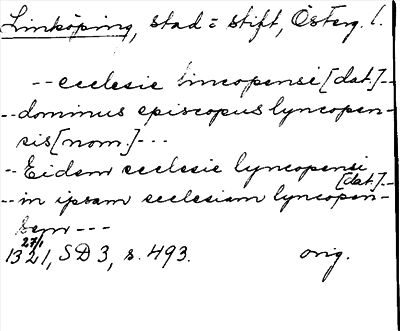 Linköping, stad = stift, Österg. l.
-- ecclesie lincopensi [dat.] --
-- dominus episcopus lyncopen-
sis [nom.] ---
-- Eidem ecclesie lyncopensi
[dat.] --
-- in ipsam ecclesiam lyncopen-
sem ---
27/1
1321, SD 3, s. 493. orig.